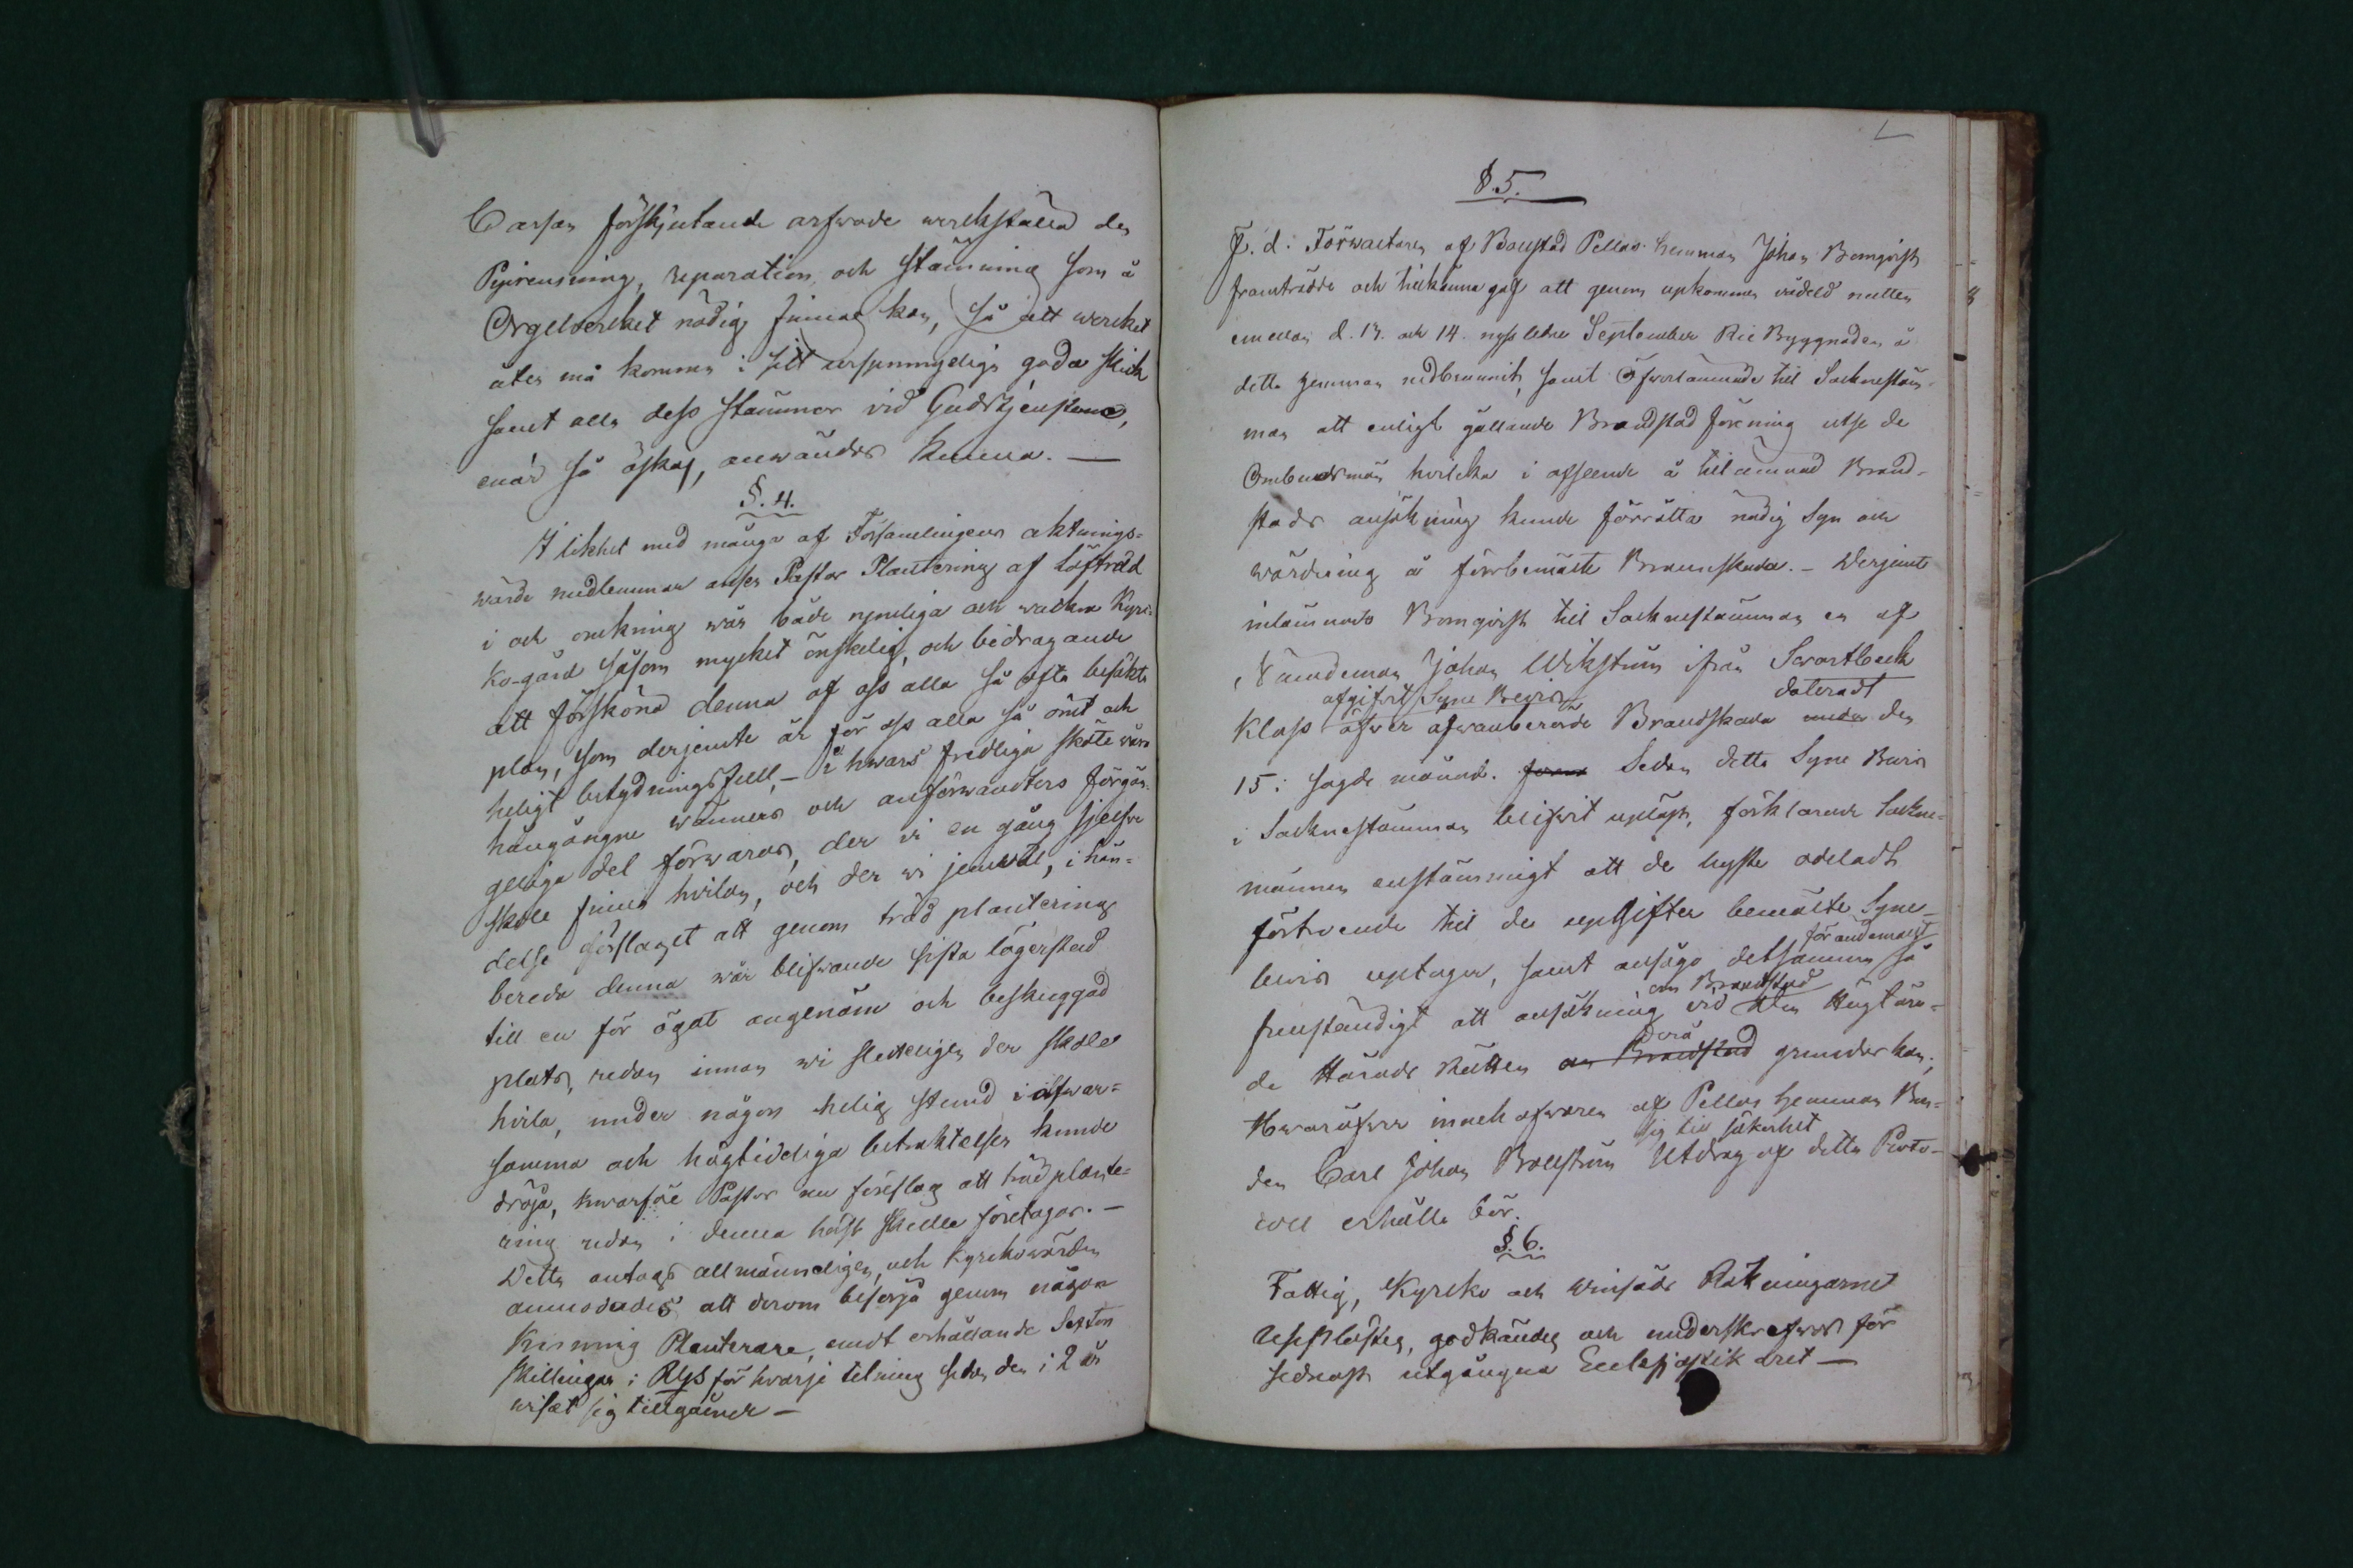 Cassan förskjutande arfwode werkställa den
Piprensning, reparation, och stämning som å
Orgelwerket nödig finnas kan, så att werket
åter må komma i sitt ursprungeliga goda skick
samt alla dess stämmor vid Gudstjensterne,
enär så äskas, anwändas kunna. —
§. 4.
I likhet med många af Församlingens aktnings-
wärda medlemmar anser Pastor Plantering af löfträd
i och omkring wår både rymliga och wackra Kyr-
ko-gård såsom mycket önskelig, och bidragande
att försköna denna af oss alla så ofta besökta
plan, som derjemte är för oss alla så ömt och
heligt betydningsfull, — i hwars fridliga sköte wåra
hängångne wänners och anförwandters förgän-
geliga del förwaras, der vi en gång sjelfve
skole finna hvilan, och der wi jemwäl, i hän-
delse förslaget att genom träd plantering
bereda denna wår blifwande sista lägerstad
till en för ögat angenäm och beskuggad
plats, redan innan wi slutligen der skole
hvila, under någon helig stund i alfwar-
samma och högtidliga betraktelser kunde
dröja, hwarföre Pastor nu föreslog att träd plante-
ring redan i denna höst skulle företagas. —
Detta antogs allmänneligen, och Kyrkowärden
anmodades att derom besörja genom någon
kunnig Planterare, emot erhållande Sexton
skillingar i Rgs för hvarje telning sedan den i 2 år
wisat sig tillgående —
§. 5.
F. d. Förwaltaren af Bollstad Pellas hemman Johan Blomqvist
framträdde och tillkänna gaf att genom upkommen vådeld natten
emellan d. 13. och 14. nyss ledne September Rie Byggnaden å
detta hemman nedbrunnit, samt öfwerlämnade till Socknestäm-
man att enligt gällande Brandstod förening utse de
Ombudsmän hvilka i afseende å tillämnad Brand-
stods ansökning kunde förrätta nödig Syn och
wärdering å förbemälte Brandskada. — Derjemte
inlämnade Blomqvist till Socknestämman en af
Nämdeman Johan Wikström ifrån Swartbäck
afgifwit Syne Bewis dateradt
Klass öfwer ofwanberörde Brandskada under den
15: sagde månad. Sedan detta Syne Bewis
i Socknestämman blifwit upläst, förklarade Sockne-
männen enstämmigt att de hyste odeladt
förtroende till de uppgifter bemälte Syne-
förändamålet
bewis uptager, samt ansågo detsamma så
om Brandstod
fullständigt att ansökning vid den Höglofl.
derå
de Härads Rätten om Brandstod grundas kan;
Hwaröfver innehafwaren af Pellas hemman Bon-
sig till säkerhet
den Carl Johan Bollström Utdrag af detta Proto-
coll erhålla bör.
§. 6.
Fattig, Kyrko och Winsäds Räkningarne
Upplästes, godkändes och underskrefwos för
sednast utgångna Ecklesiastik året —